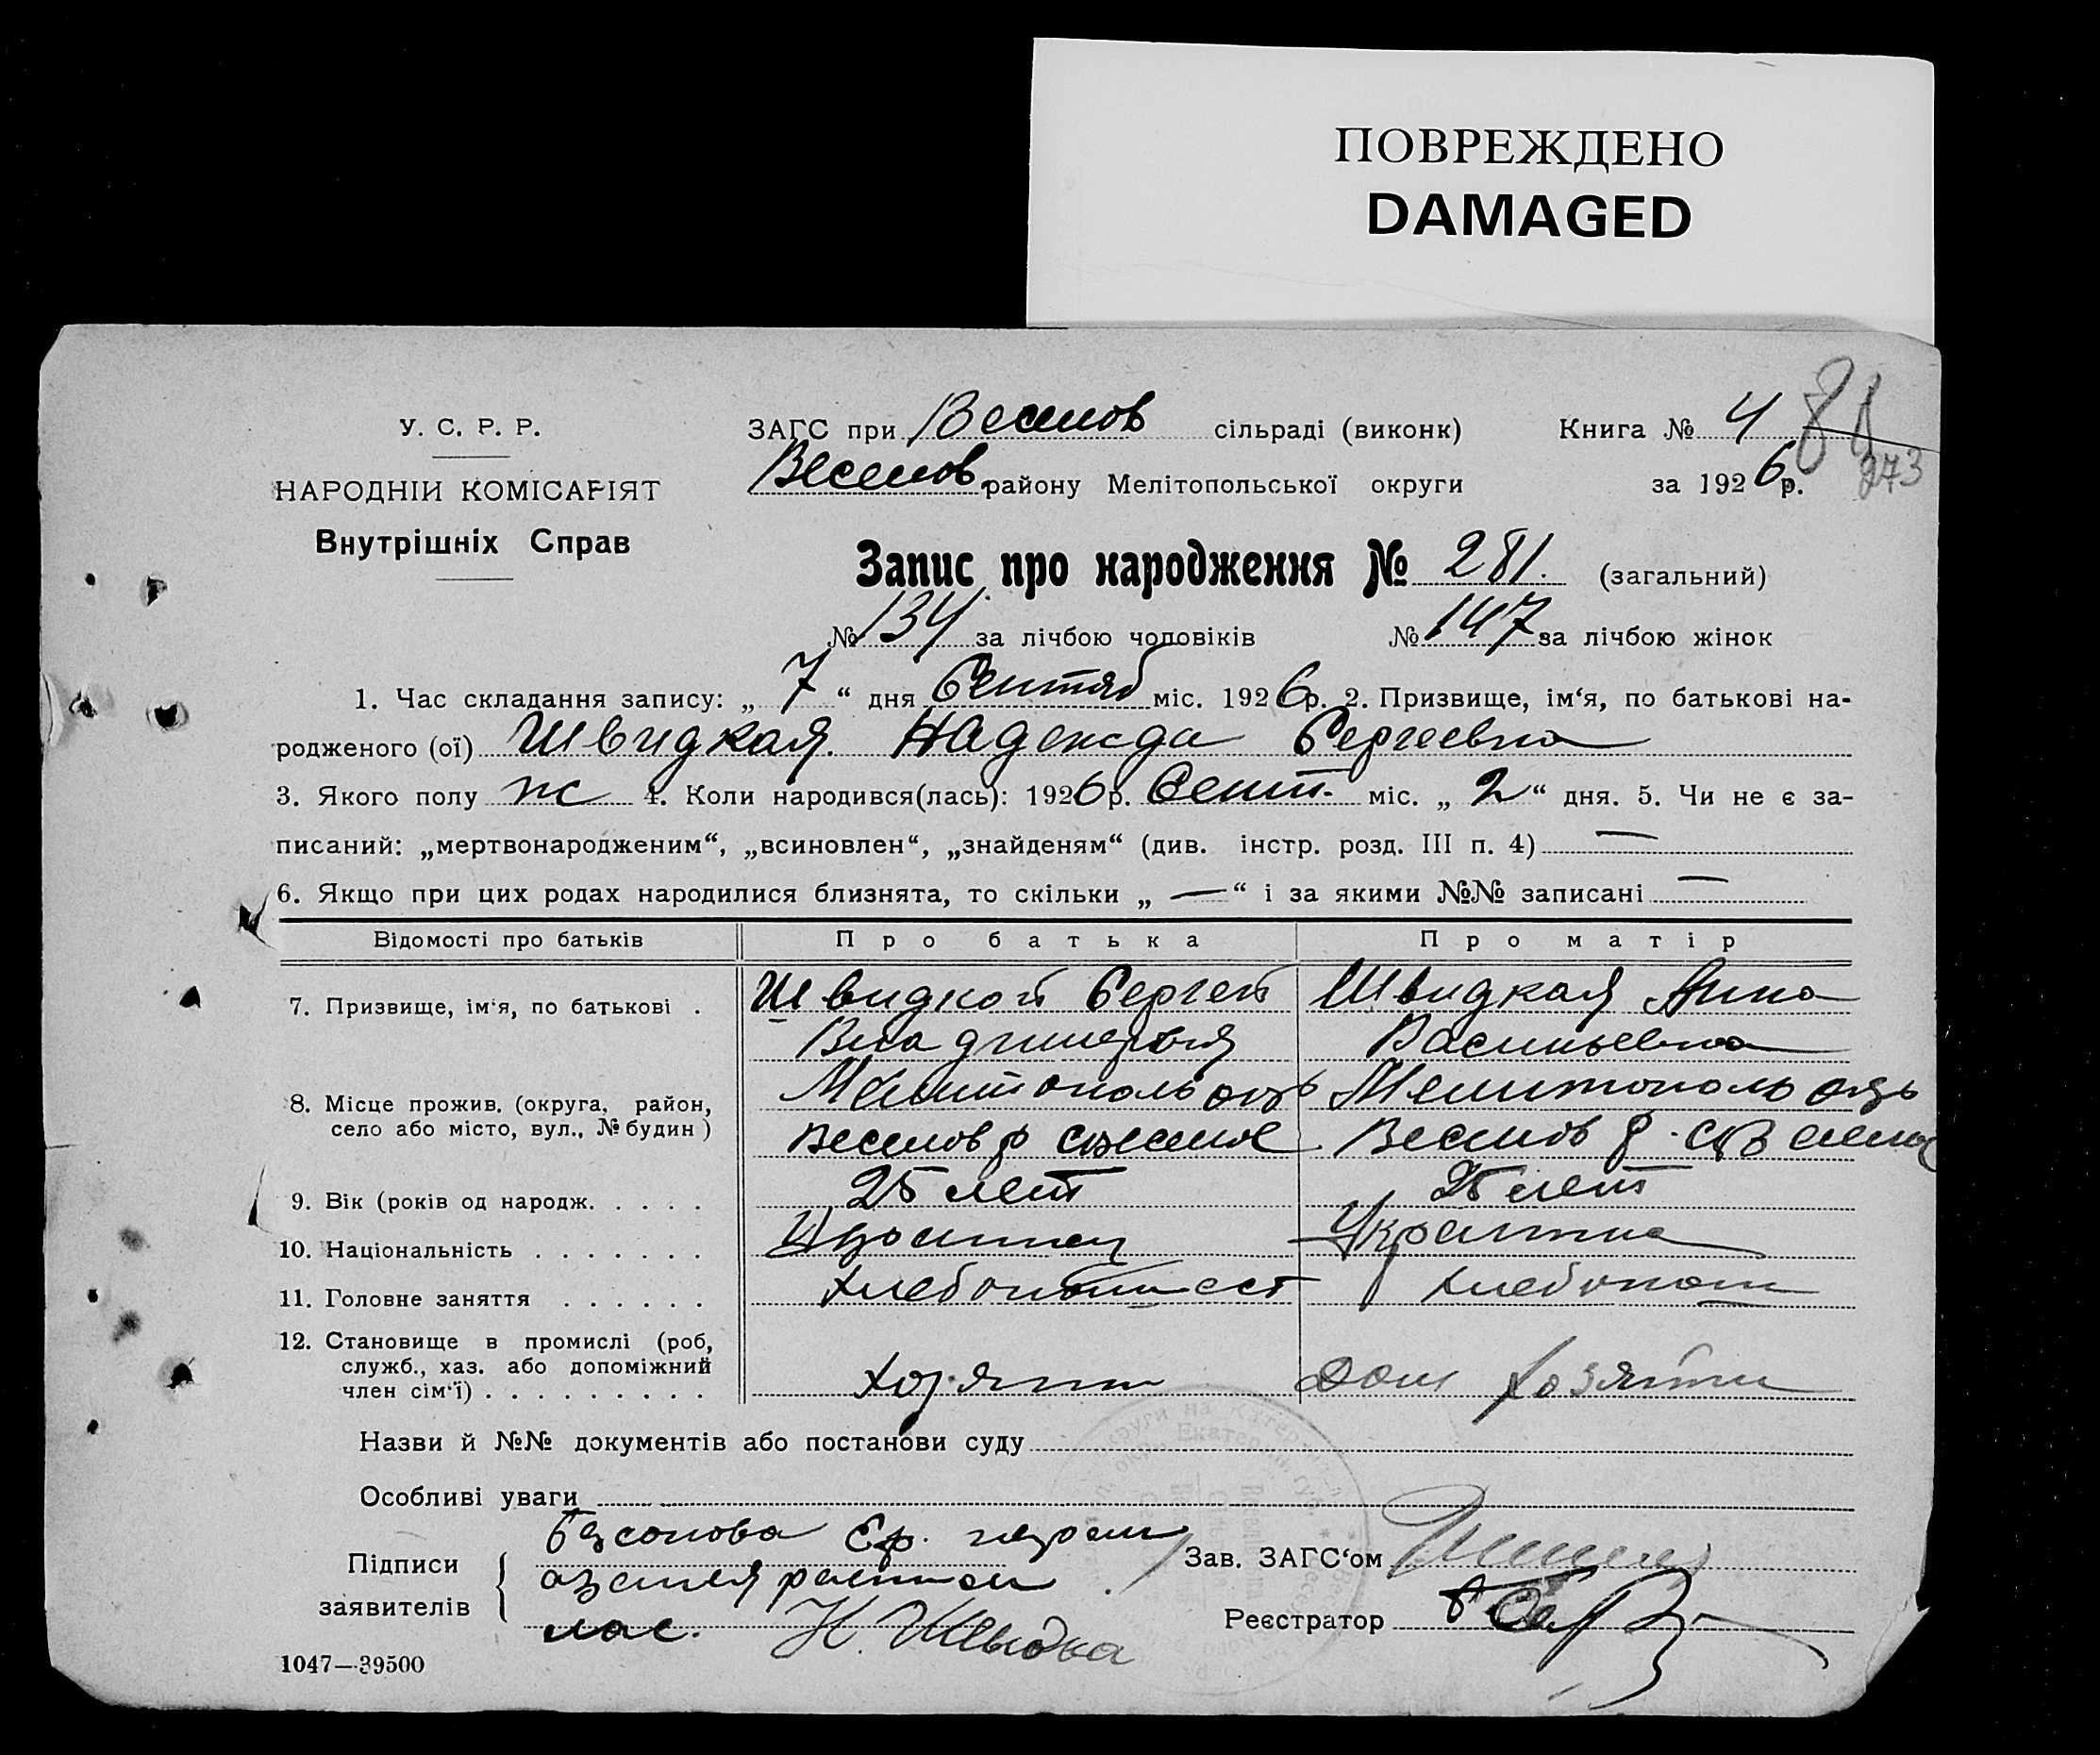 ПОВРЕЖДЕНО
DAMAGED
У. С. Р. Р.
НАРОДНІЙ КОМІСАРІЯТ
Внутрішніх Справ
ЗАГС при Веселов сільраді (виконк) Книга № 4 81
Веселов. району Мелітопольської округи за 1926 р. 273
Запис про народження № 281. (загальний)
№ 134 за лічбою чоловіків № 147 за лічбою жінок
1. Час складання запису: „ 7 “ дня Сентяб міс. 1926 р. 2. Призвище, ім‘я, по батькові на-
родженого (ої) Швидкая Надежда Сергеевна
3. Якого полу ж 4. Коли народився(лась): 1926 р. Сент. міс. „ 2 “ дня. 5. Чи не є за-
писаний: „мертвонародженим“, „всиновлен“, „знайденям“ (див. інстр. розд. III п. 4) —
6. Якщо при цих родах народилися близнята, то скільки „ — “ і за якими №№ записані —
Відомості про батьків Про батька Про матір
7. Призвище, ім‘я, по батькові . Швидкой Сергей Швидкая Анна
Васильевна
8. Місце прожив. (округа, район, Мелитополь Мелитополь
село або місто, вул., № будин ) Веселов р Веселов р.
9. Вік (років од народж. . . . . 25 лет 25 лет
10. Національність . . . . . . . Украинец Украинка
11. Головне заняття . . . . . . Хлебопаш
12. Становище в промислі (роб,
служб., хаз. або допоміжний
член сім‘ї) . . . . . . . . . Хозяин Дом Хозяйки
Назви й №№ документів або постанови суду
Особливі уваги
Підписи
заявителів
Зав. ЗАГС‘ом
Реєстратор
Н. Швидка
1047—39500